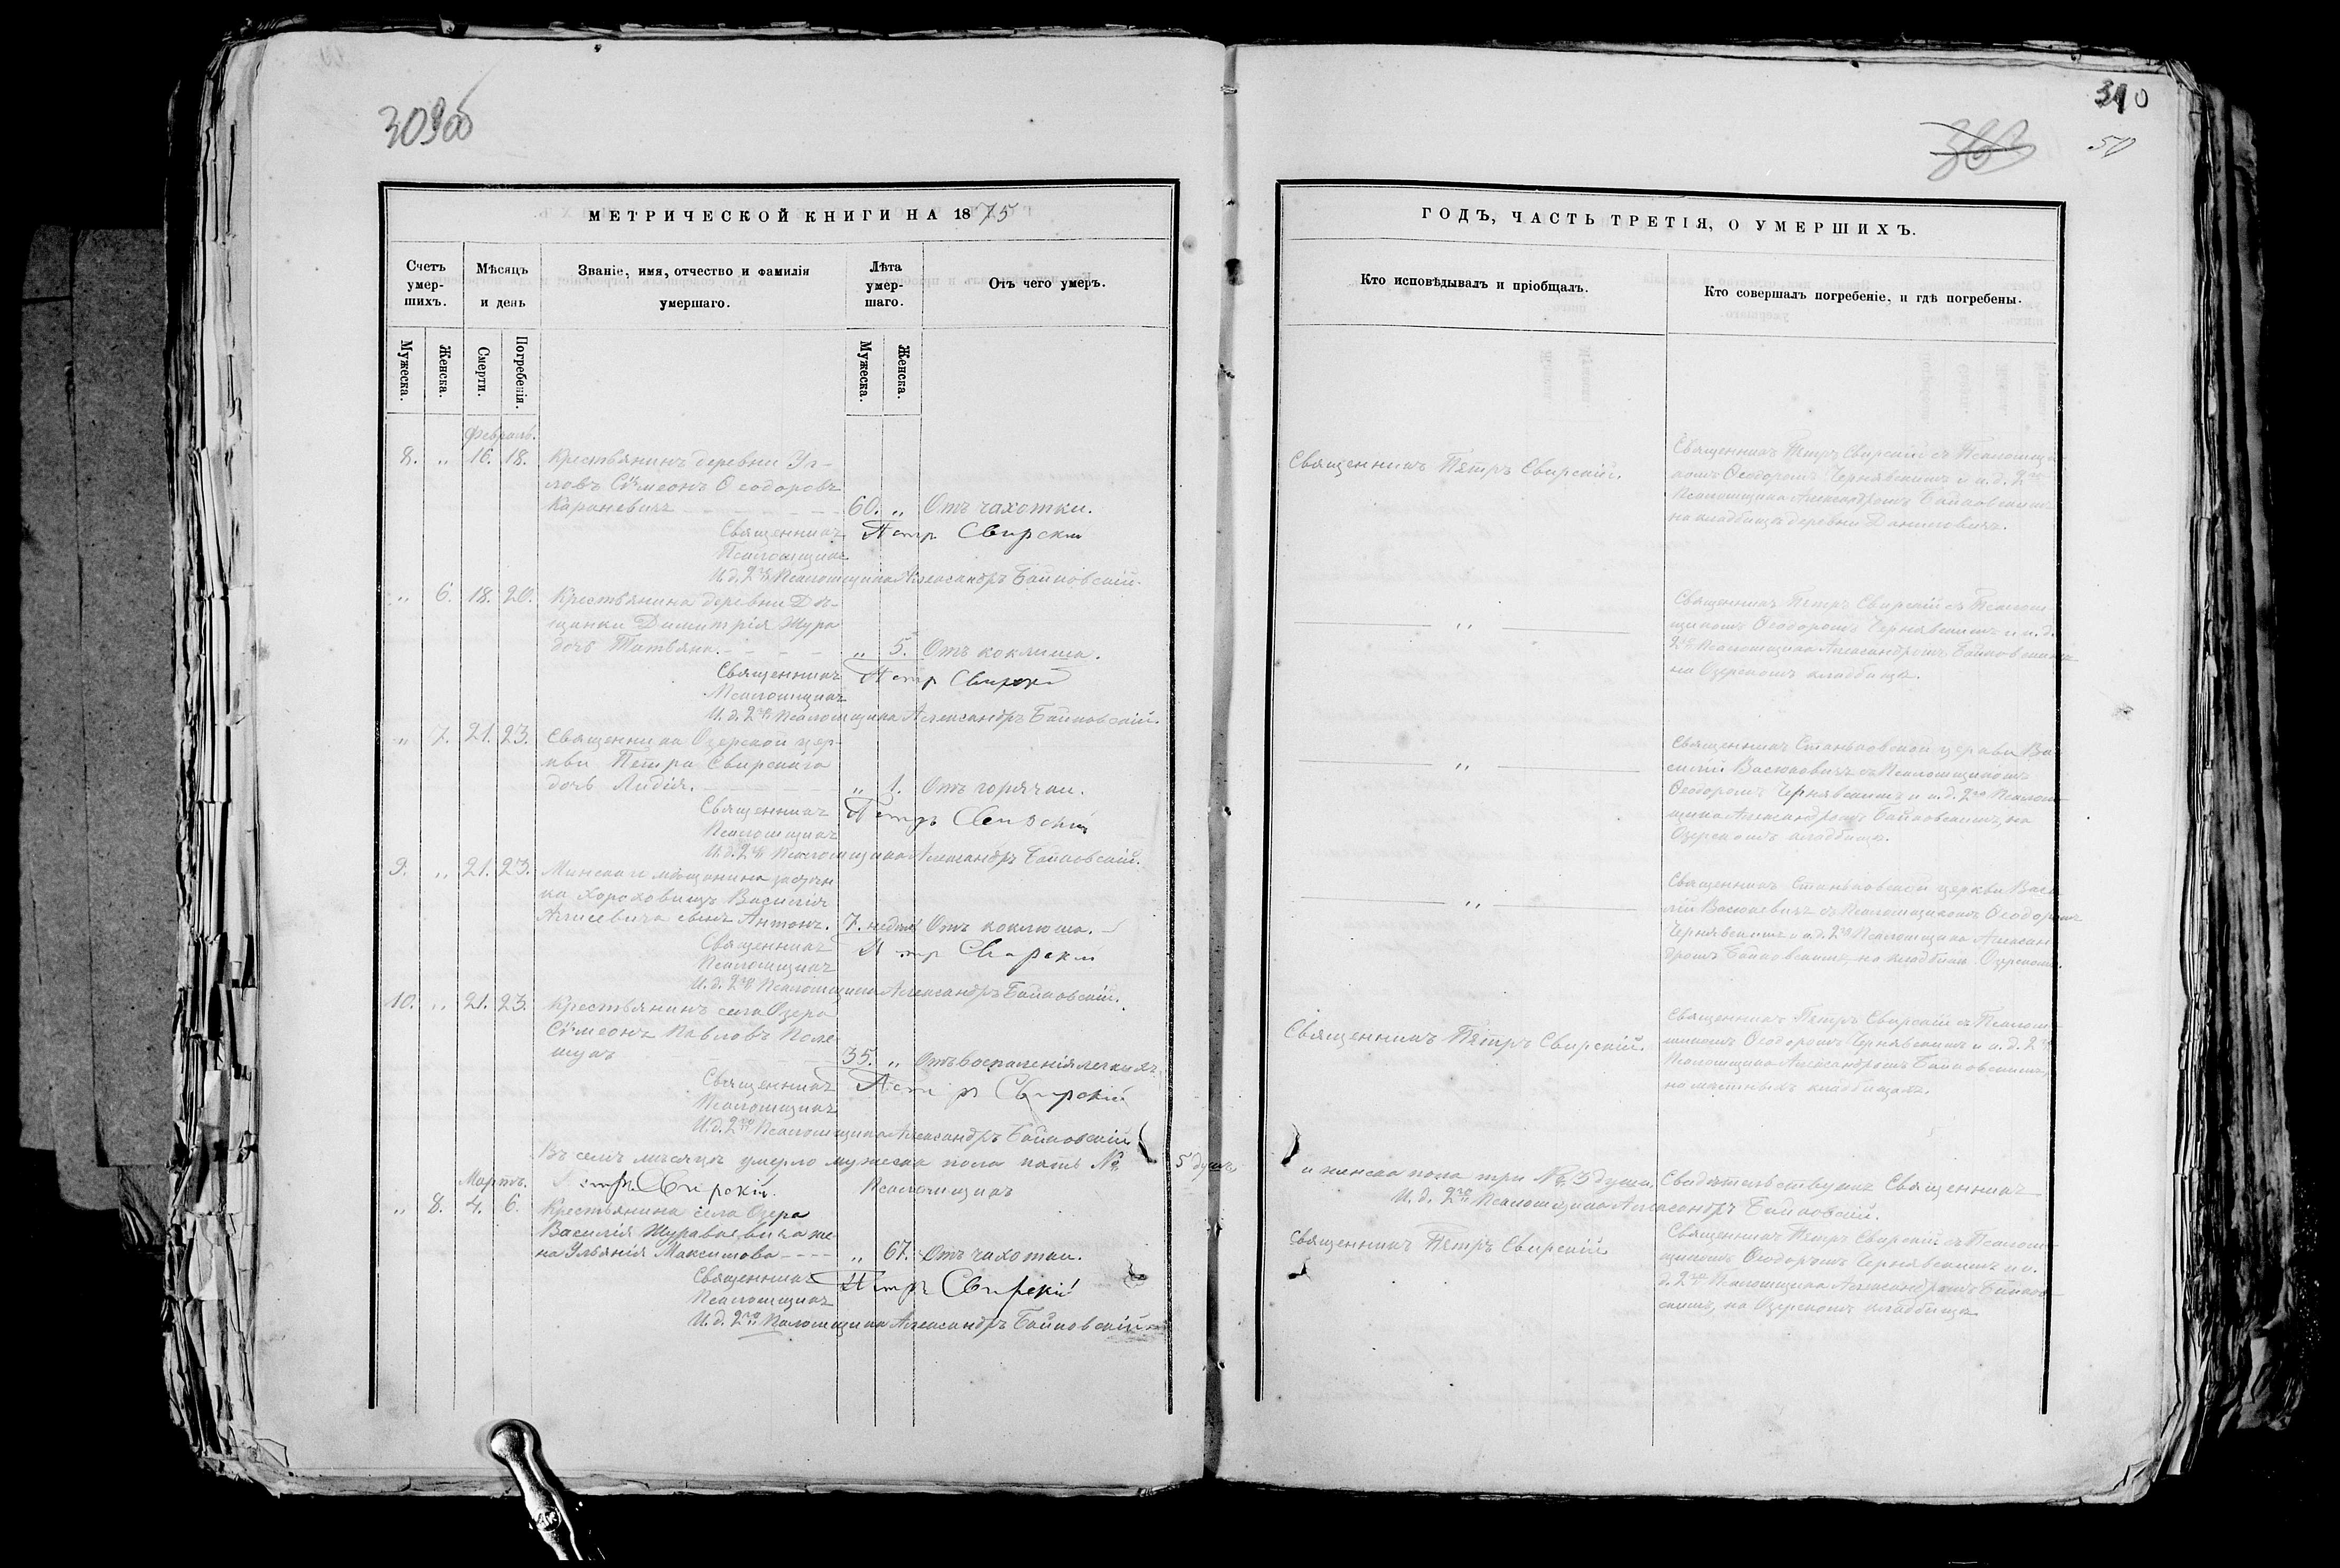 309об
310
50
МЕТРИЧЕСКОЙ КНИГИ НА 1875
ГОДЪ, ЧАСТЬ ТРЕТІЯ, О УМЕРШИХЪ.
Счетъ умер-шихъ.
Мѣсяцъ и день
Званіе, имя, отчество и фамилія умершаго.
Лѣта умер-шаго.
Отъ чего умеръ.
Кто исповѣдывалъ и пріобщалъ.
Кто совершалъ погребеніе, и гдѣ погребены.
Мужеска.
Женска.
Смерти.
Погребенія.
Мужеска.
Женска.
Февраль.
8. „ 16. 18. Крестьянинъ деревни
Сѵмеонъ Ѳеодоровъ
Караневичъ 60. „ Отъ чахотки.
Священникъ Петръ Свирскій
Псаломщикъ
И. д. 2го Псаломщика Александръ Байковскій.
Священникъ Петръ Свирскій.
Священникъ Петръ Свирскій съ Псаломщи-
комъ Ѳеодоромъ Чернявскимъ и и. д. 2го
Псаломщика Александромъ Байковскимъ
на кладбищѣ деревни Даниловичъ.
„ 6. 18. 20. Крестьянина деревни
Димитрія Жура
дочь Татьяна. „ 5. Отъ коклюша.
Священникъ Петръ Свирскій
Псаломщикъ
И. д. 2го Псаломщика Александръ Байковскій.
„
Священникъ Петръ Свирскій съ Псалом-
щикомъ Ѳеодоромъ Чернявскимъ и и. д.
2го Псаломщика Александромъ Байковскимъ
на Озерскомъ кладбищѣ.
„ 7. 21. 23. Священника Озерской цер-
кви Петра Свирскаго
дочь Лидія. „ 1. Отъ горячки.
Священникъ Петръ Свирскій
Псаломщикъ
И. д. 2го Псаломщика Александръ Байковскій.
„
Священникъ Станьковской церкви Ва-
силій Васюковичъ съ Псаломщикомъ
Ѳеодоромъ Чернявскимъ и и. д. 2го Псалом-
щика Александромъ Байковскимъ, на
Озерскомъ кладбищѣ.
9. „ 21. 23. Минскаго мѣщанина застѣн-
ка Василія
сынъ Антонъ. 7. недѣль Отъ коклюша.
Священникъ Петръ Свирскій
Псаломщикъ
И. д. 2го Псаломщика Александръ Байковскій.
„
Священникъ Станьковской церкви Васи-
лій Васюковичъ съ Псаломщикомъ Ѳеодоромъ
Чернявскимъ и и. д. 2го Псаломщика Алексан-
дромъ Байковскимъ на кладбищѣ Озерскомъ.
10. „ 21. 23. Крестьянинъ села Озера
Сѵмеонъ Павловъ Поле-
щукъ 35. „ Отъ воспаленія легкихъ
Священникъ Петръ Свирскій
Псаломщикъ
И. д. 2го Псаломщика Александръ Байковскій
Священникъ Петръ Свирскій.
Священникъ Петръ Свирскій съ Псалом-
щикомъ Ѳеодоромъ Чернявскимъ и и. д. 2го
Псаломщика Александромъ Байковскимъ,
на мѣстныхъ кладбищахъ.
Въ семъ мѣсяцѣ умерло мужеска пола пять № 5 душъ
и женска пола три № 3 души, Свидѣтельствуемъ Священникъ
Петръ Свирскій. Псаломщикъ
И. д. 2го Псаломщика Александръ Байковскій.
Мартъ.
„ 8. 4. 6. Крестьянина села Озера
Василія Журавкевича же-
на Ульянія Максимова „ 67. Отъ чахотки.
Священникъ Петръ Свирскій
Псаломщикъ
И. д. 2го Псаломщика Александръ Байковскій
Священникъ Петръ Свирскій
Священникъ Петръ Свирскій съ Псалом-
щикомъ Ѳеодоромъ Чернявскимъ и и.
д. 2го Псаломщика Александромъ Байков-
скимъ, на Озерскомъ кладбищѣ